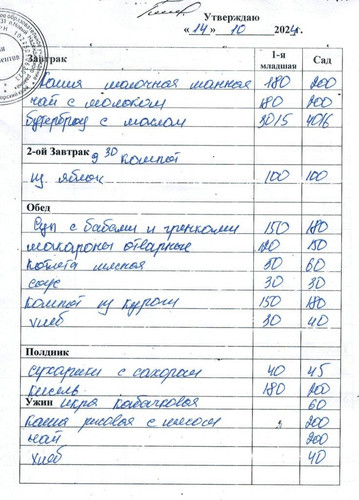 Утверждаю
« 14 » 10 2024г.
Завтрак 1-я младшая Сад
Каша молочная манная 180 200
чай с молоком 180 200
бутерброд с маслом 3015 4016
2-ой Завтрак 9 30 Компот
из яблок 100 100
Обед
Суп с бабами и гренками 150 180
макароны отварные 120 150
котлета мясная 50 60
соус 30 30
компот из кураги 150 180
хлеб 30 40
Полдник
сухарики с сахаром 40 45
кисель 180 200
Ужин икра кабачковая 60
каша рисовая с 200
чай 200
хлеб 40